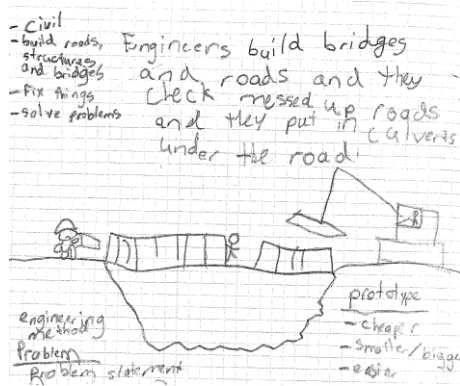 - Civil
- build roads,
structures
and bridges
- Fix things
- solve problems
Engineers build bridges
and roads and they
check messed up roads
and they put in culverts
under the road.
engineering
method
Problem
Problem statement
prototype
- cheaper
- smaller/bigge
- easier